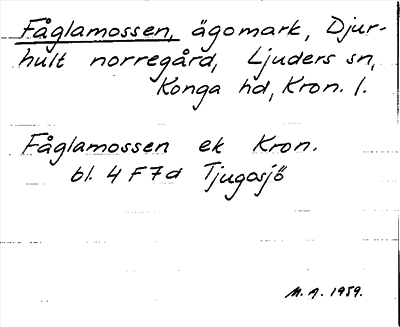 Fåglamossen, ägomark, Djur-
hult norregård, Ljuders sn,
Konga hd, Kron. l.
Fåglamossen ek Kron.
bl. 4 F 7 d Tjugosjö
M. A. 1959.